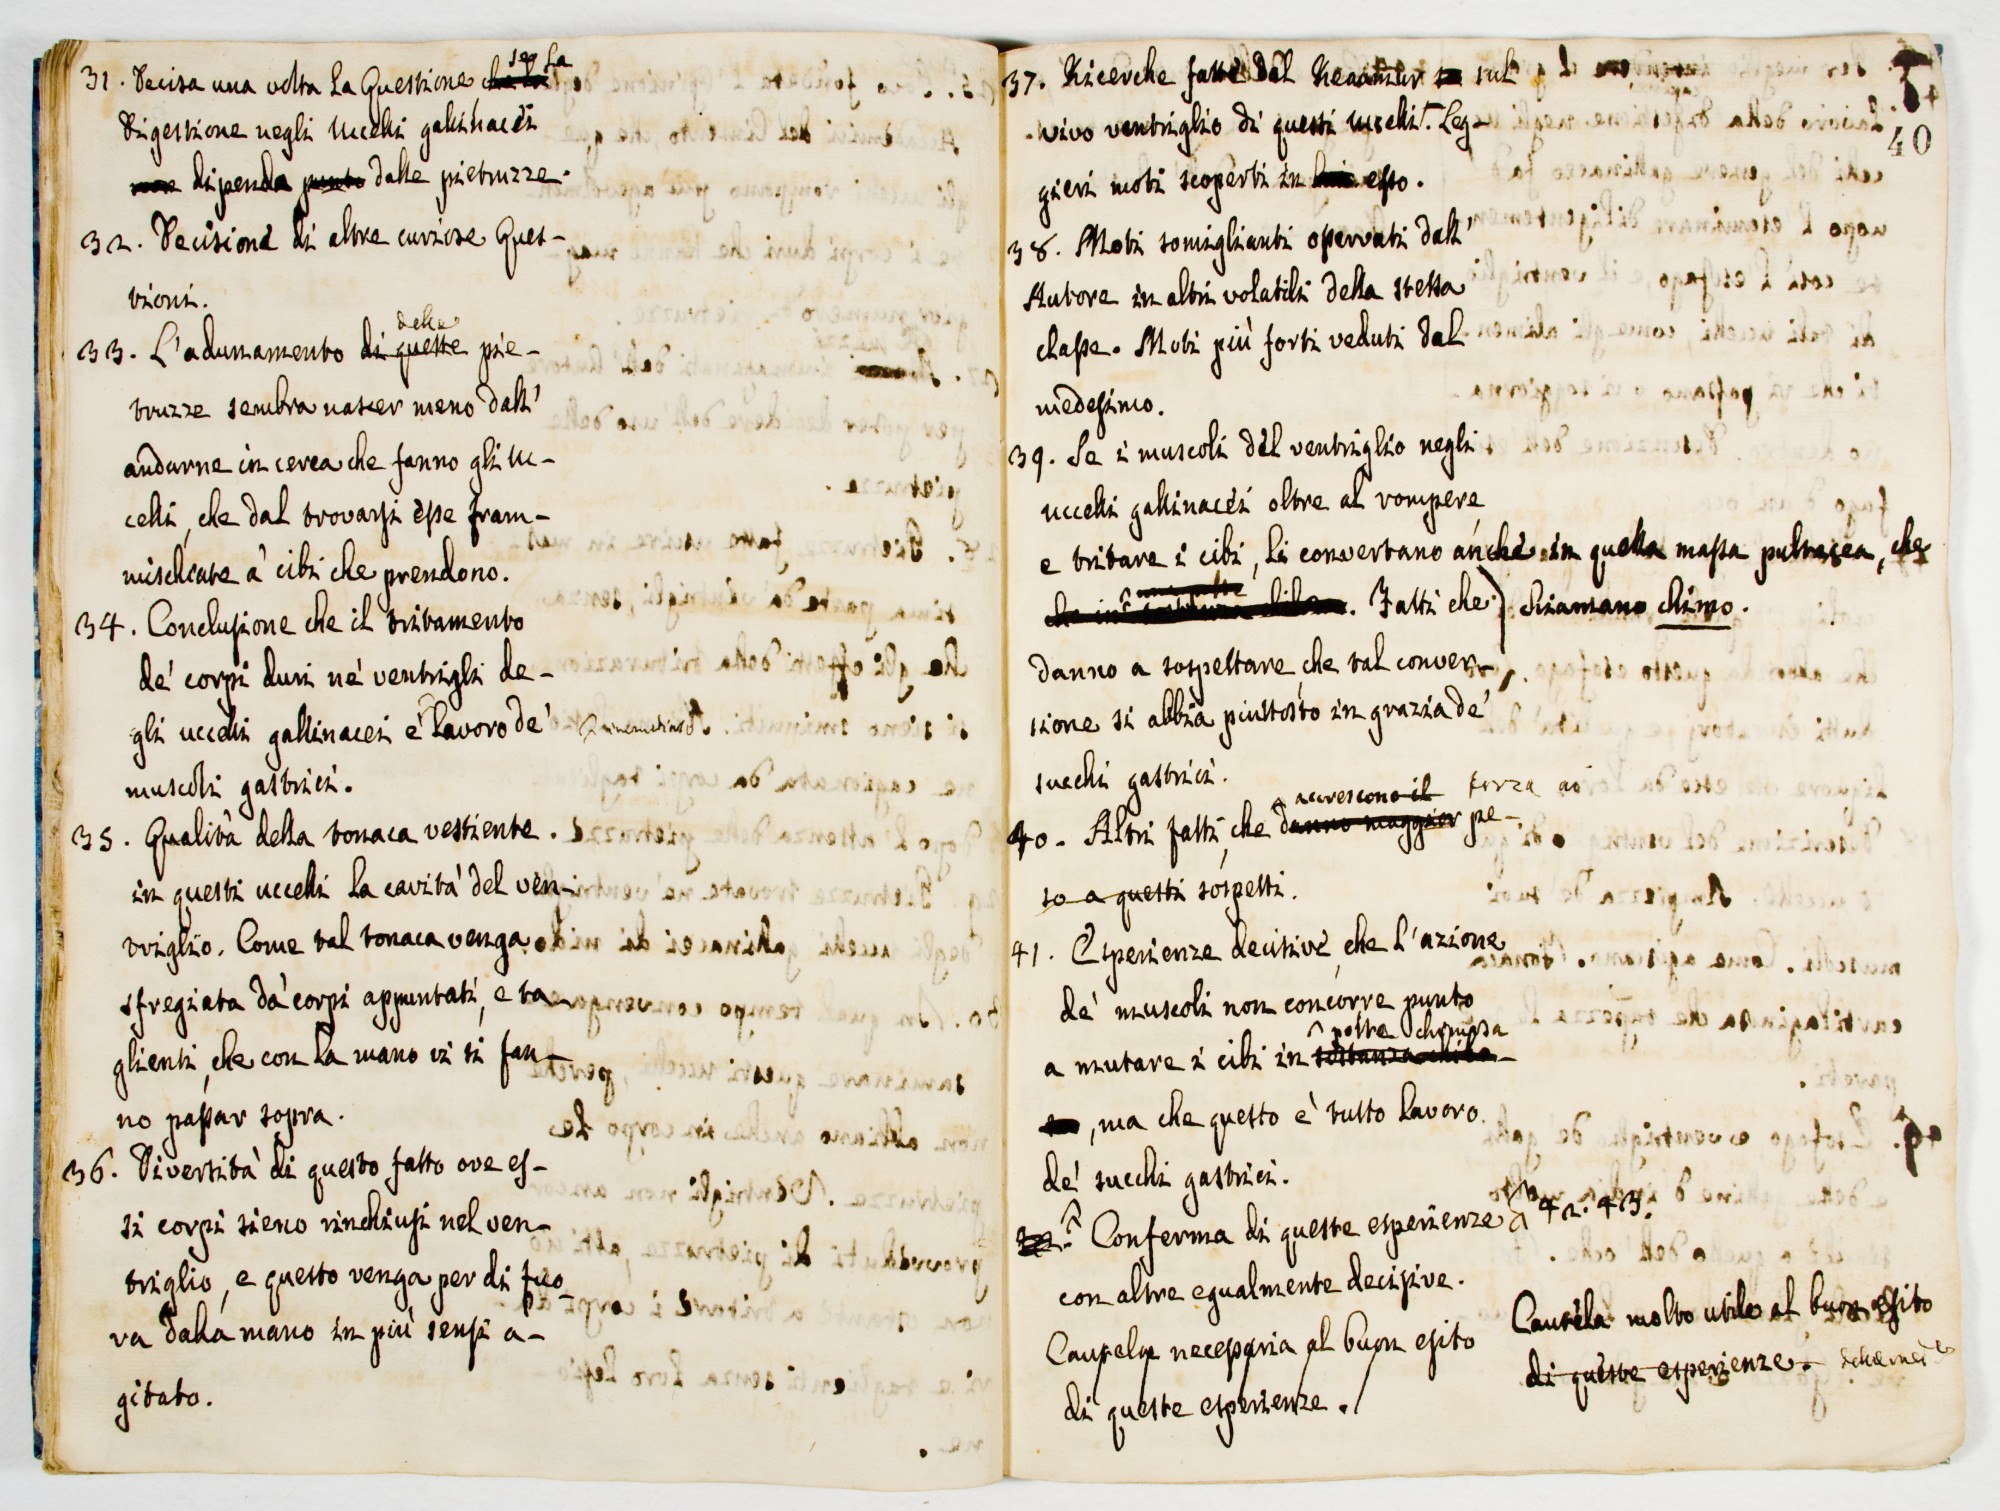 31. Decisa una volta la Questione che la se la
Digestione negli Uccelli gallinacei
non dipenda punto dalle pietruzze.
32. Decisione di altre curiose Ques-
tioni.
33. L'adunamento di queste delle pie-
truzze sembra nascer meno dall'
andarne in cerca che fanno gli uc-
celli, che dal trovarsi esse fram-
mischiate a' cibi che prendono.
34. Conclusione che il tritamento
de' corpi duri ne' ventrigli de-
gli uccelli gallinacei è lavoro de'
muscoli gastrici.
35. Qualità della tonaca vestiente
in questi uccelli la cavità del ven-
triglio. Come tal tonaca venga
sfregiata da' corpi appuntati, e ta-
glienti, che con la mano vi si fan-
no passar sopra.
36. Diversità di questo fatto ove es-
si corpi sieno rinchiusi nel ven-
triglio, e questo venga per di fuo-
ra dalla mano in più sensi a-
gitato.
40
37. Ricerche fatte dal Reaumur su sul
vivo ventriglio di questi uccelli. Leg-
gieri moti scoperti in esso.
38. Moti somiglianti osservati dall'
Autore in altri volatili della stessa
classe. Moti più forti veduti dal
medesimo.
39. Se i muscoli del ventriglio negli
uccelli gallinacei oltre al rompere
e tritare i cibi, li convertano anche in quella massa pultacea, che
che in una . Fatti che chiamano chimo.
danno a sospettare, che tal conver-
sione si abbia piuttosto in grazia de'
succhi gastrici.
accrescono il forza ai
40. Altri fatti, che danno maggior pe-
so a questi sospetti.
41. Esperienze decisive, che l'azione
de' muscoli non concorre punto
polte chimosa
a mutare i cibi in sostanza chilo-
sa, ma che questo è tutto lavoro
de' succhi gastrici.
Conferma di queste esperienze 42. 43.
con altre egualmente decisive.
Cautela necessaria al buon esito
di queste esperienze.
Cautela molto utile al buon esito
di queste esperienze.